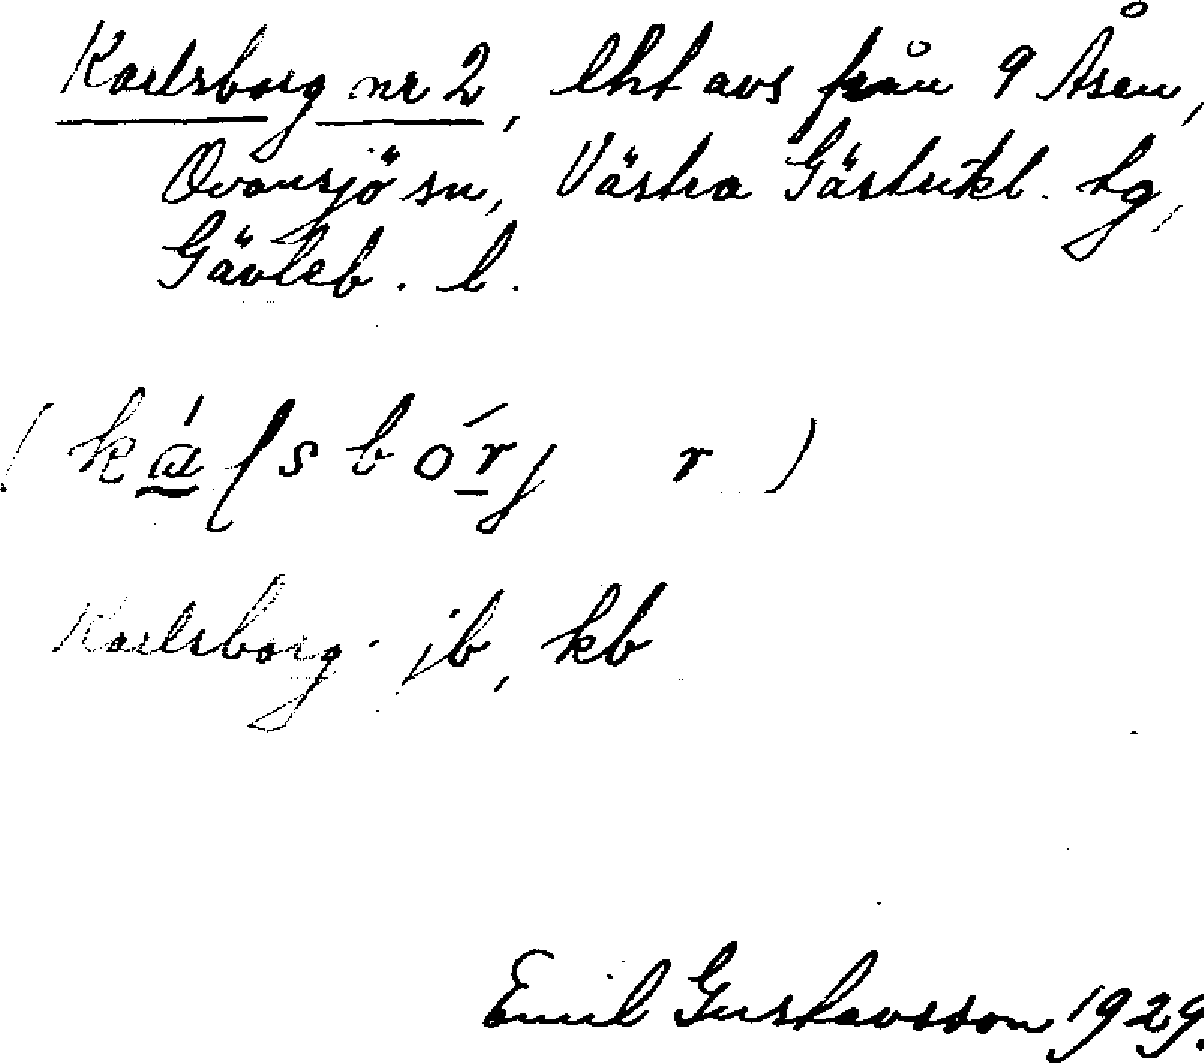 Karlsborg nr 2, lht avs från 9 Åsen,
Ovansjö sn, Västra Gästrikl. tg,
Gävleb. l.
Karlsborg jb, kb
Emil Gustavsson 1929.